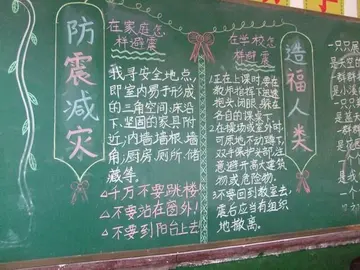 防震减灾
在家庭怎
样避震
我寻安全地点,
即室内易于形成
的三角空间:床沿
下、坚固的家具附
近;内墙墙根、墙
角;厨房、厕所、储
藏等。
△千万不要跳楼
△不要站在窗外!
△不要到阳台上去!
在学校怎
样避震
1.正在上课时,要在
教师指挥下迅速
抱头、闭眼、躲在
各自的课桌下。
2.在操场或室外时,
可原地不动蹲下,
双手保护头部,注
意避开高大建筑
物或危险物。
3.不要回到教室去;
震后应当有组织
地撤离。
造福人类